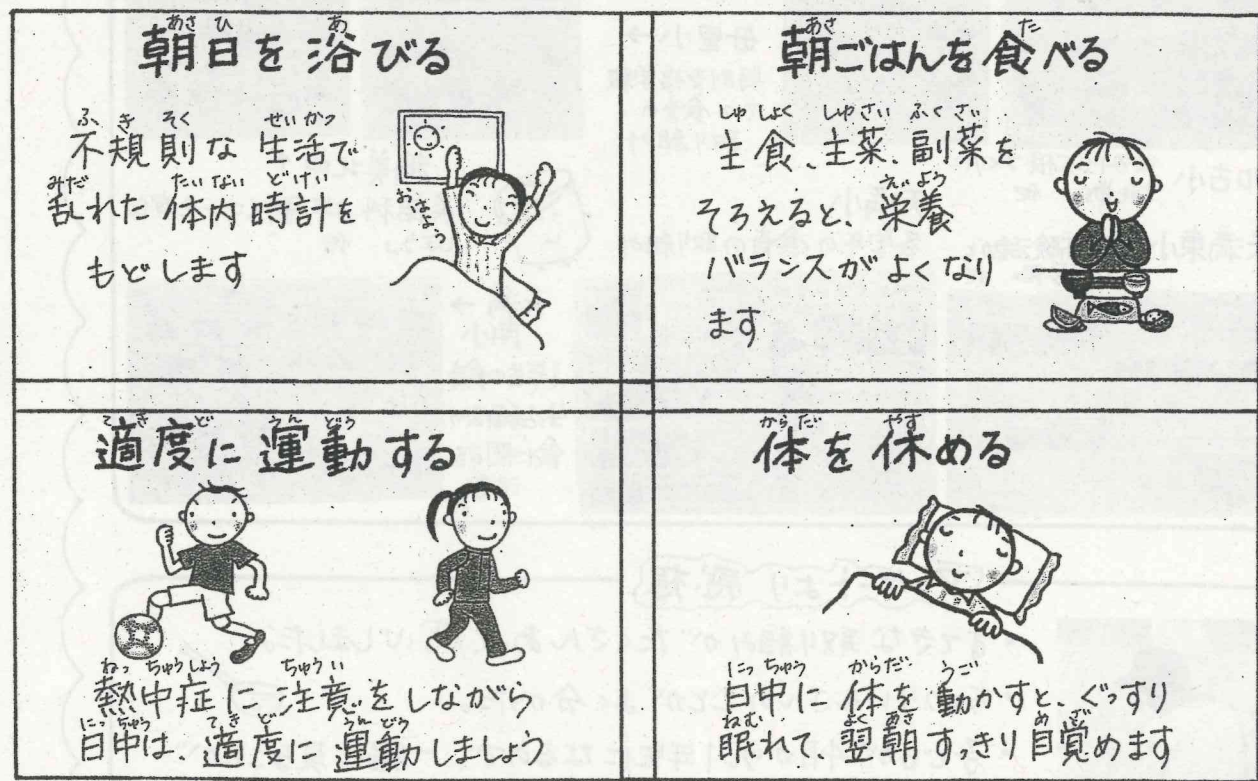 朝日を浴びる
不規則な生活で
乱れた体内時計を
もどします
おはよう
朝ごはんを食べる
主食、主菜、副菜を
そろえると、栄養
バランスがよくなり
ます
適度に運動する
熱中症に注意をしながら
日中は、適度に運動しましょう
体を休める
日中に体を動かすと、ぐっすり
眠れて、翌朝すっきり目覚めます